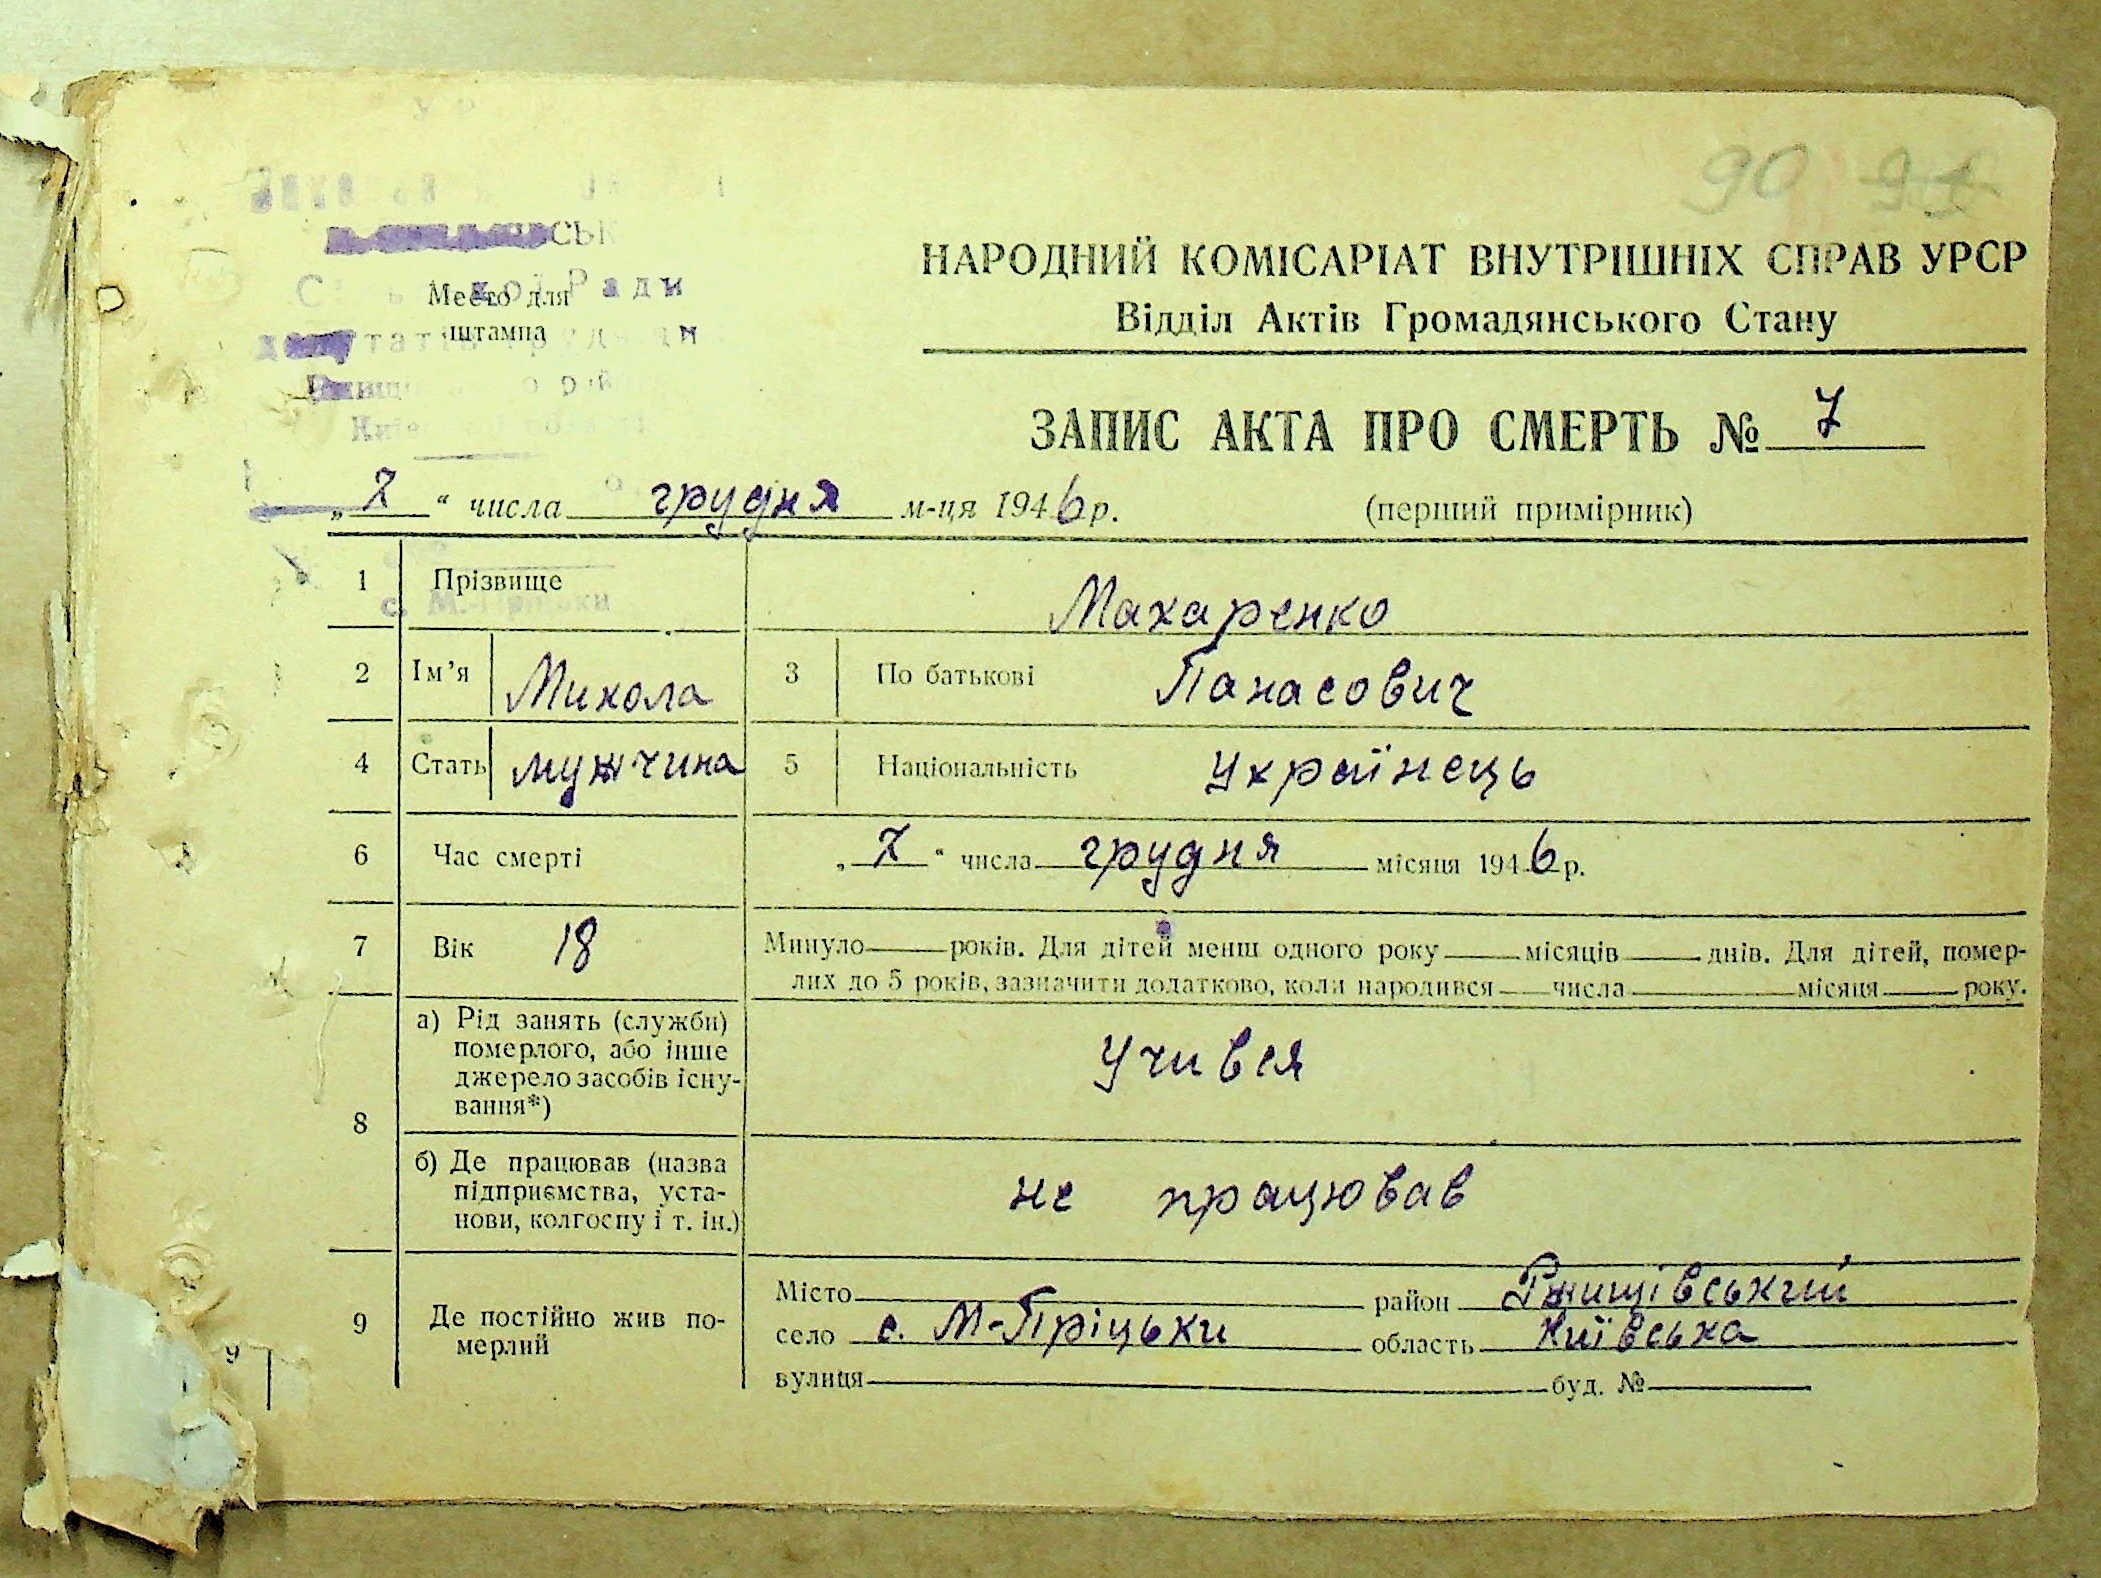 90 91
НАРОДНИЙ КОМІСАРІАТ ВНУТРІШНІХ СПРАВ УРСР
Відділ Актів Громадянського Стану
Место для
штампа
Ради
ЗАПИС АКТА ПРО СМЕРТЬ № 7
„ 7 “ числа грудня м-ця 1946 р.
(перший примірник)
1 Прізвище Макаренко
с. М.-Пріцьки
2 Ім’я Микола 3 По батькові Панасович
4 Стать мужчина 5 Національність Українець
6 Час смерті „ 7 “ числа грудня місяця 1946 р.
7 Вік 18 Минуло — років. Для дітей менш одного року — місяців — днів. Для дітей, помер-
лих до 5 років, зазначити додатково, коли народився — числа — місяця — року.
8 а) Рід занять (служби)
померлого, або інше
джерело засобів існу-
вання*)
Учився
б) Де працював (назва
підприємства, уста-
нови, колгоспу і т. ін.)
не працював
9 Де постійно жив по-
мерлий
Місто — район Ржищівський
село с. М-Пріцьки область Київська
вулиця — буд. №
9